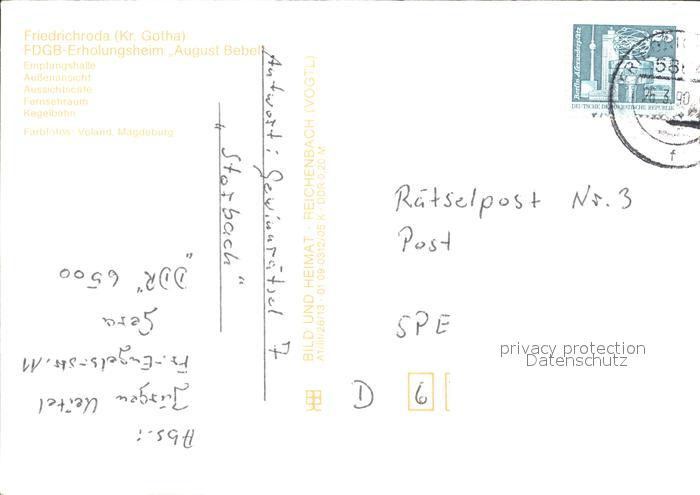 Friedrichroda (Kr. Gotha)
FDGB-Erholungsheim „August Bebel"
Empfangshalle
Außenansicht
Aussichtscafé
Fernsehraum
Kegelbahn
Farbfotos: Voland, Magdeburg
Antwort: Gewinnrätsel 7
„Storbach"
BILD UND HEIMAT · REICHENBACH (VOGTL)
A1/III/26/13 · 01 09 0312/05 K · DDR 0,20 M
Berlin, Alexanderplatz
DEUTSCHE DEMOKRATISCHE REPUBLIK
26.3.90
f
Rätselpost Nr. 3
Post
SPE
privacy protection
Datenschutz
D 6
Abs.:
Jürgen
Fr.-Engels-Str. 11
Gera
"DDR" 6500